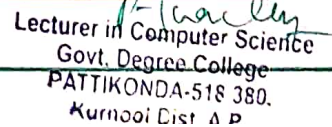 Lecturer in Computer Science
Govt. Degree College
PATTIKONDA-518 380.
Kurnool Dist. A.P.